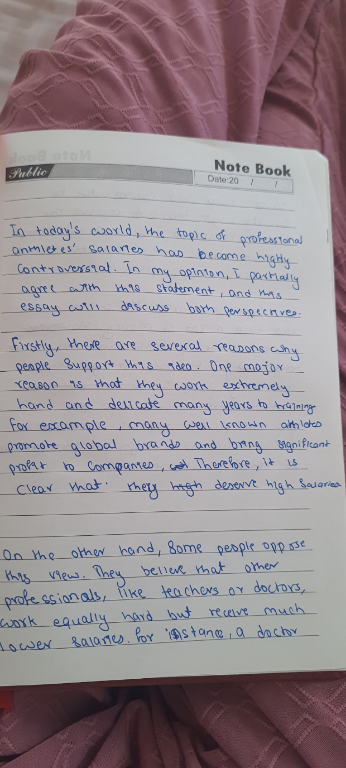 Note Book
Public
Date:20 / /
In today's world, the topic of professional
anthletes' salaries has become highly
controversial. In my opinion, I partially
agree with this statement, and this
essay will discuss both perspectives.
Firstly, there are several reasons why
people support this idea. One major
reason is that they work extremely
hand and delicate many years to training
For example, many well known athletes
promote global brands and bring significant
profit to companies, Therefore, it is
clear that. they high deserve high Salaries
On the other hand, Some people oppose
this view. They believe that other
professionals, like teachers or doctors,
work equally hard but receive much
lower salaries. for instance, a doctor